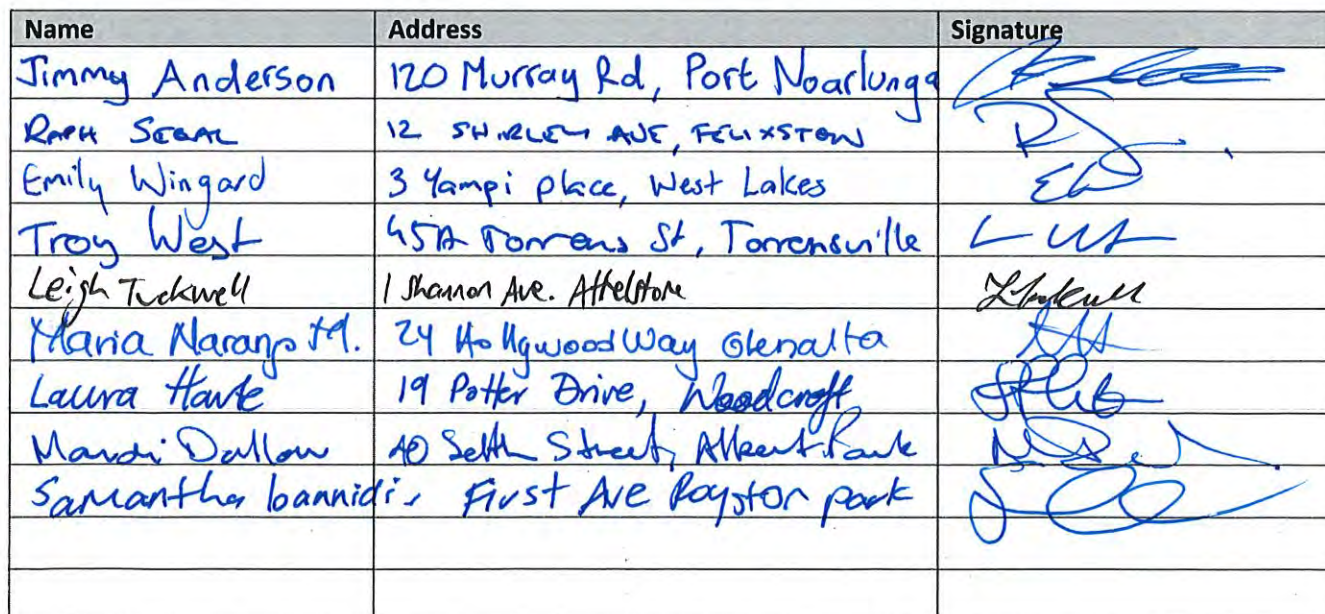 Name Address Signature
Jimmy Anderson 120 Murray Rd, Port Noarlunga
RAPH SEGAL 12 SHIRLEY AVE, FELIXSTOW
Emily Wingard 3 Yampi place, West Lakes
Troy West 45A Torrens St, Torrensville
Leigh Tuckwell 1 Shannon Ave. Athelstone
Maria Naranjo M. 24 Hollywood Way Glenalta
Laura 19 Potter Drive, Woodcroft
Mandi Dallow 40 Street, Albert Park
Samantha Ioannidis First Ave Royston park